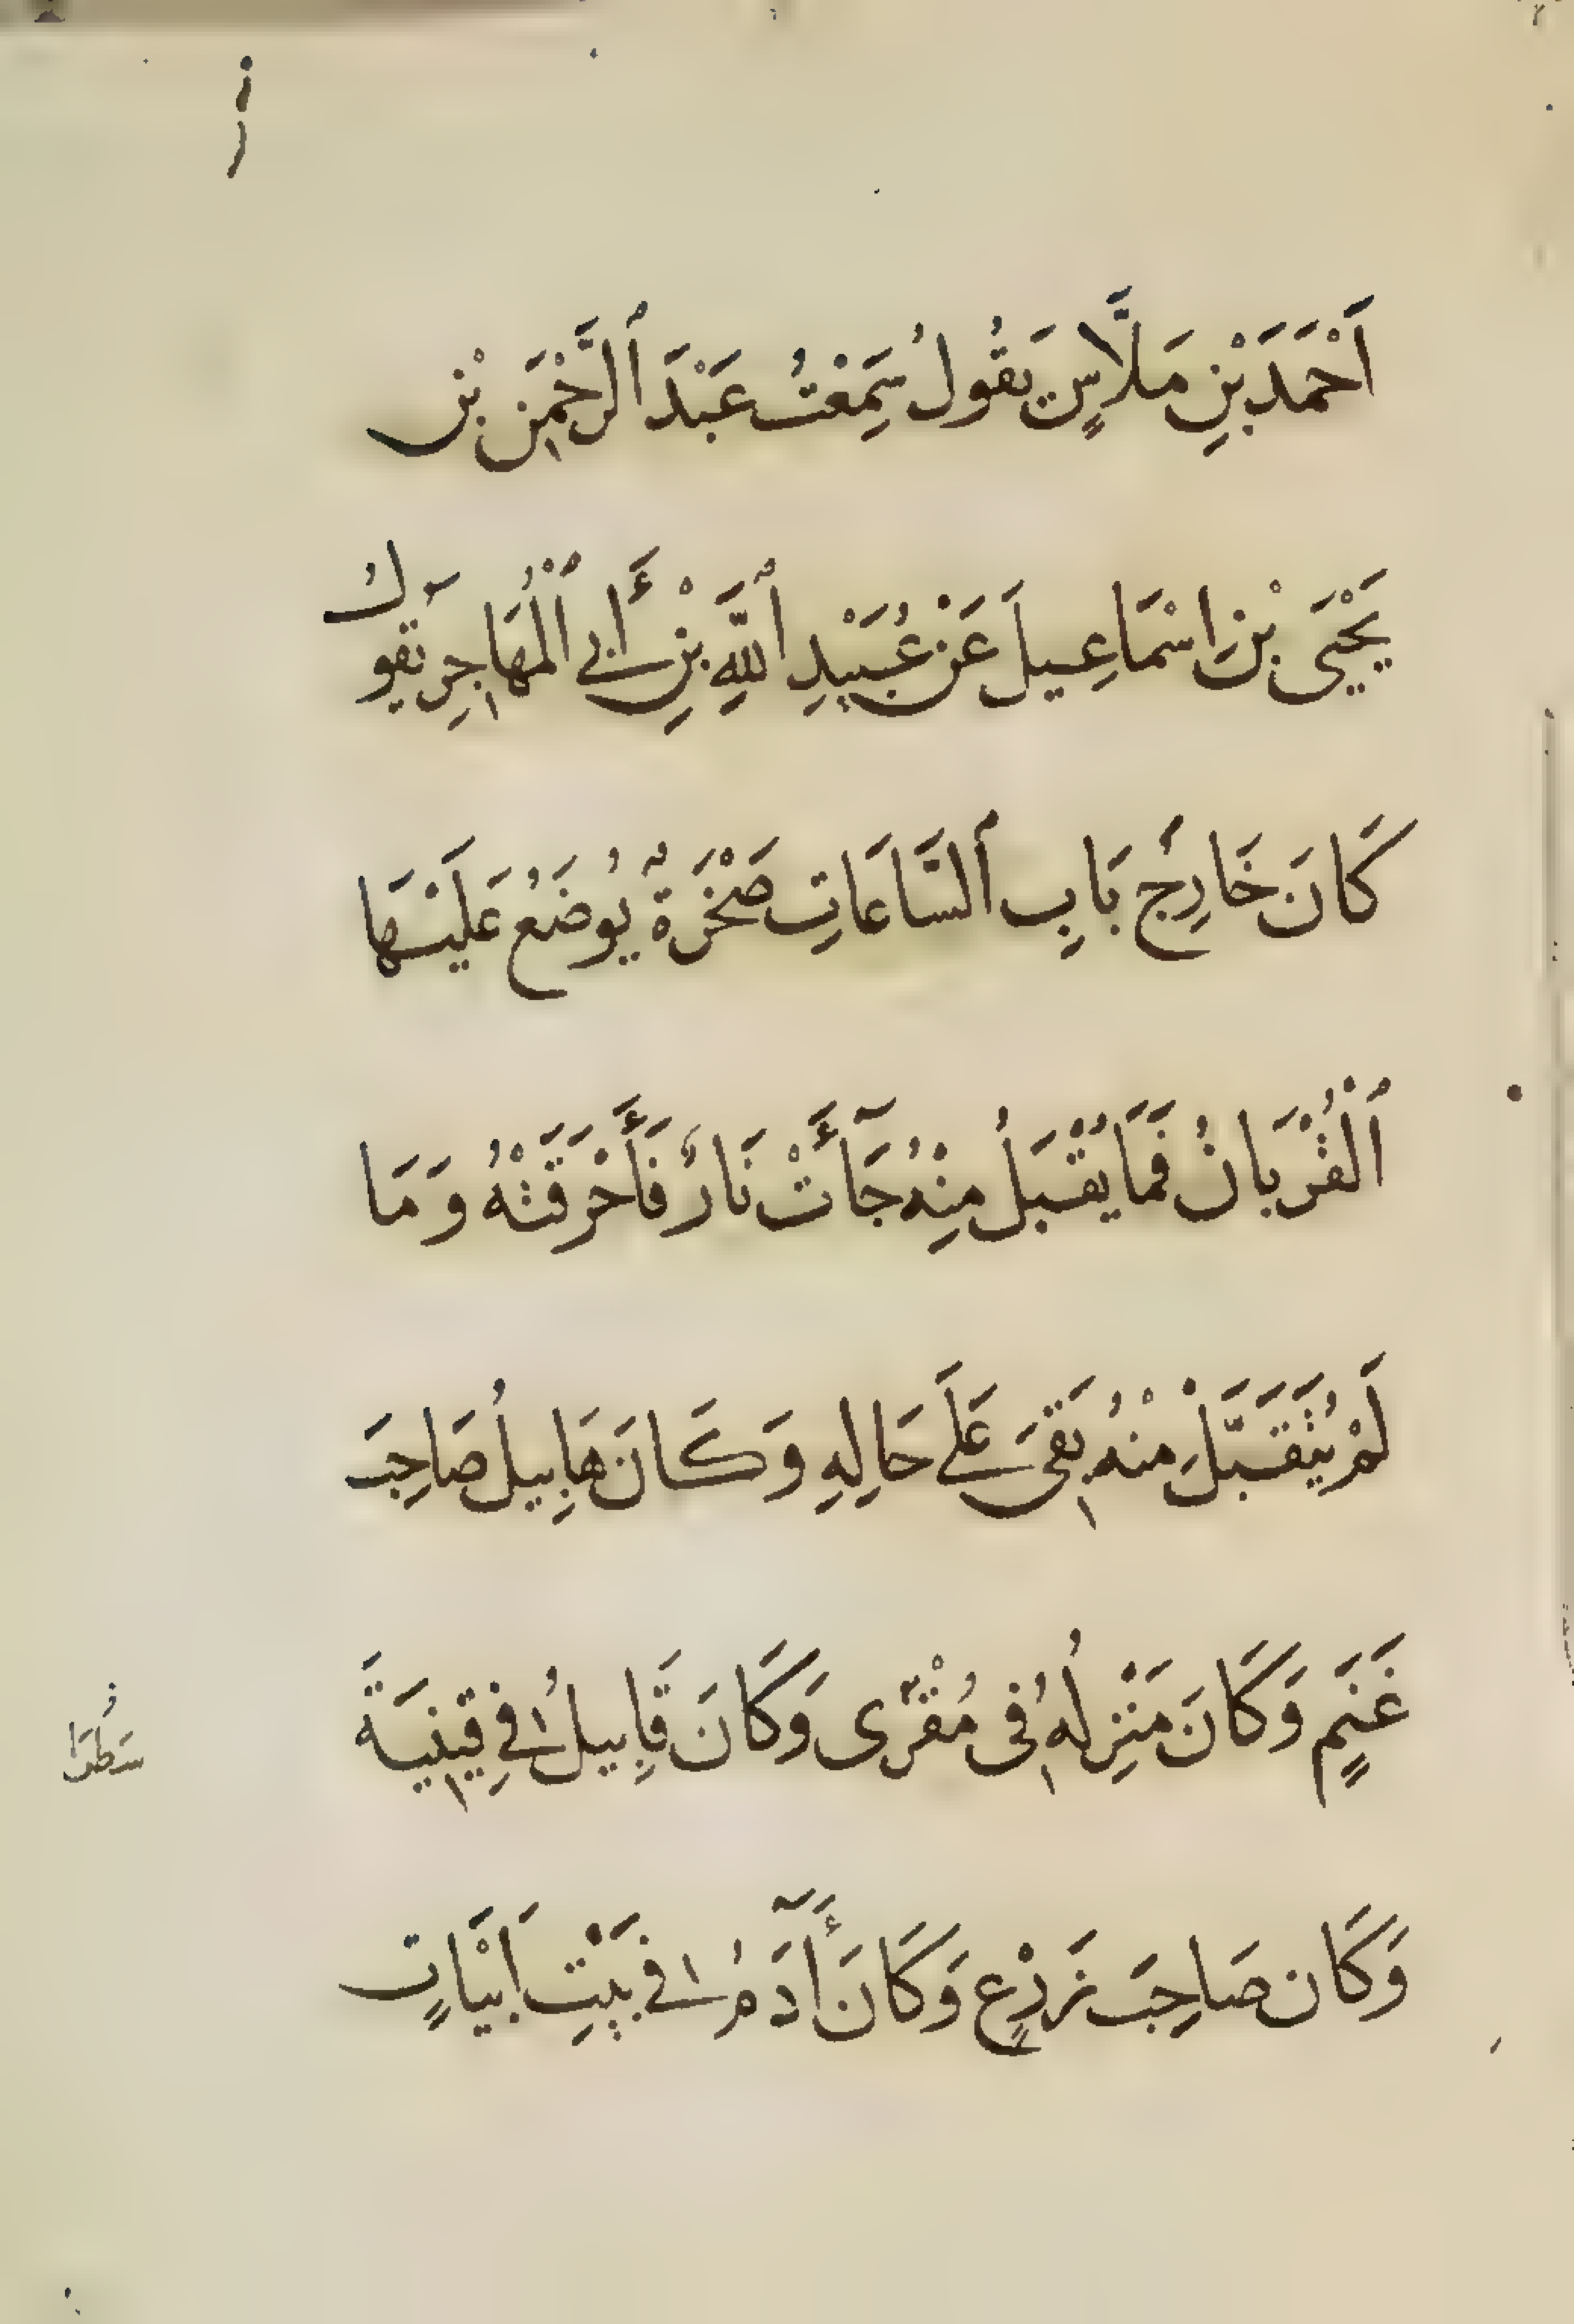 اَحْمَدَ بْنِ مَلَّاسٍ يَقُولُ سَمِعْتُ عَبْدَ ٱلرَّحْمٰنِ بْنِ
يَحْيَى بْنِ اسْمَاعِيلَ عَنْ عُبَيْدِ ٱللَّهِ بْنِ أَبِي ٱلْمُهَاجِرِ يَقُولُ
كَانَ خَارِجَ بَابِ ٱلسَّاعَاتِ صَخْرَةٌ يُوضَعُ عَلَيْهَا
ٱلْقُرْبَانُ فَمَا يُقْبَلُ مِنْهُ جَآءَتْ نَارٌ فَأَحْرَقَتْهُ وَمَا
لَمْ يُتَقَبَّلْ مِنْهُ بَقَىَ عَلَى حَالِهِ وَكَانَ هَابِيلُ صَاحِبَ
غَنَمٍ وَكَانَ مَنْزِلُهُ فِى مُقْرَى وَكَانَ قَابِيلُ فِي قِينِيَةَ
وَكَان صَاحِبَ زَرْعٍ وَكَانَ أَٓدَمُ فِي بَيْتِ اَبْيَاتٍ